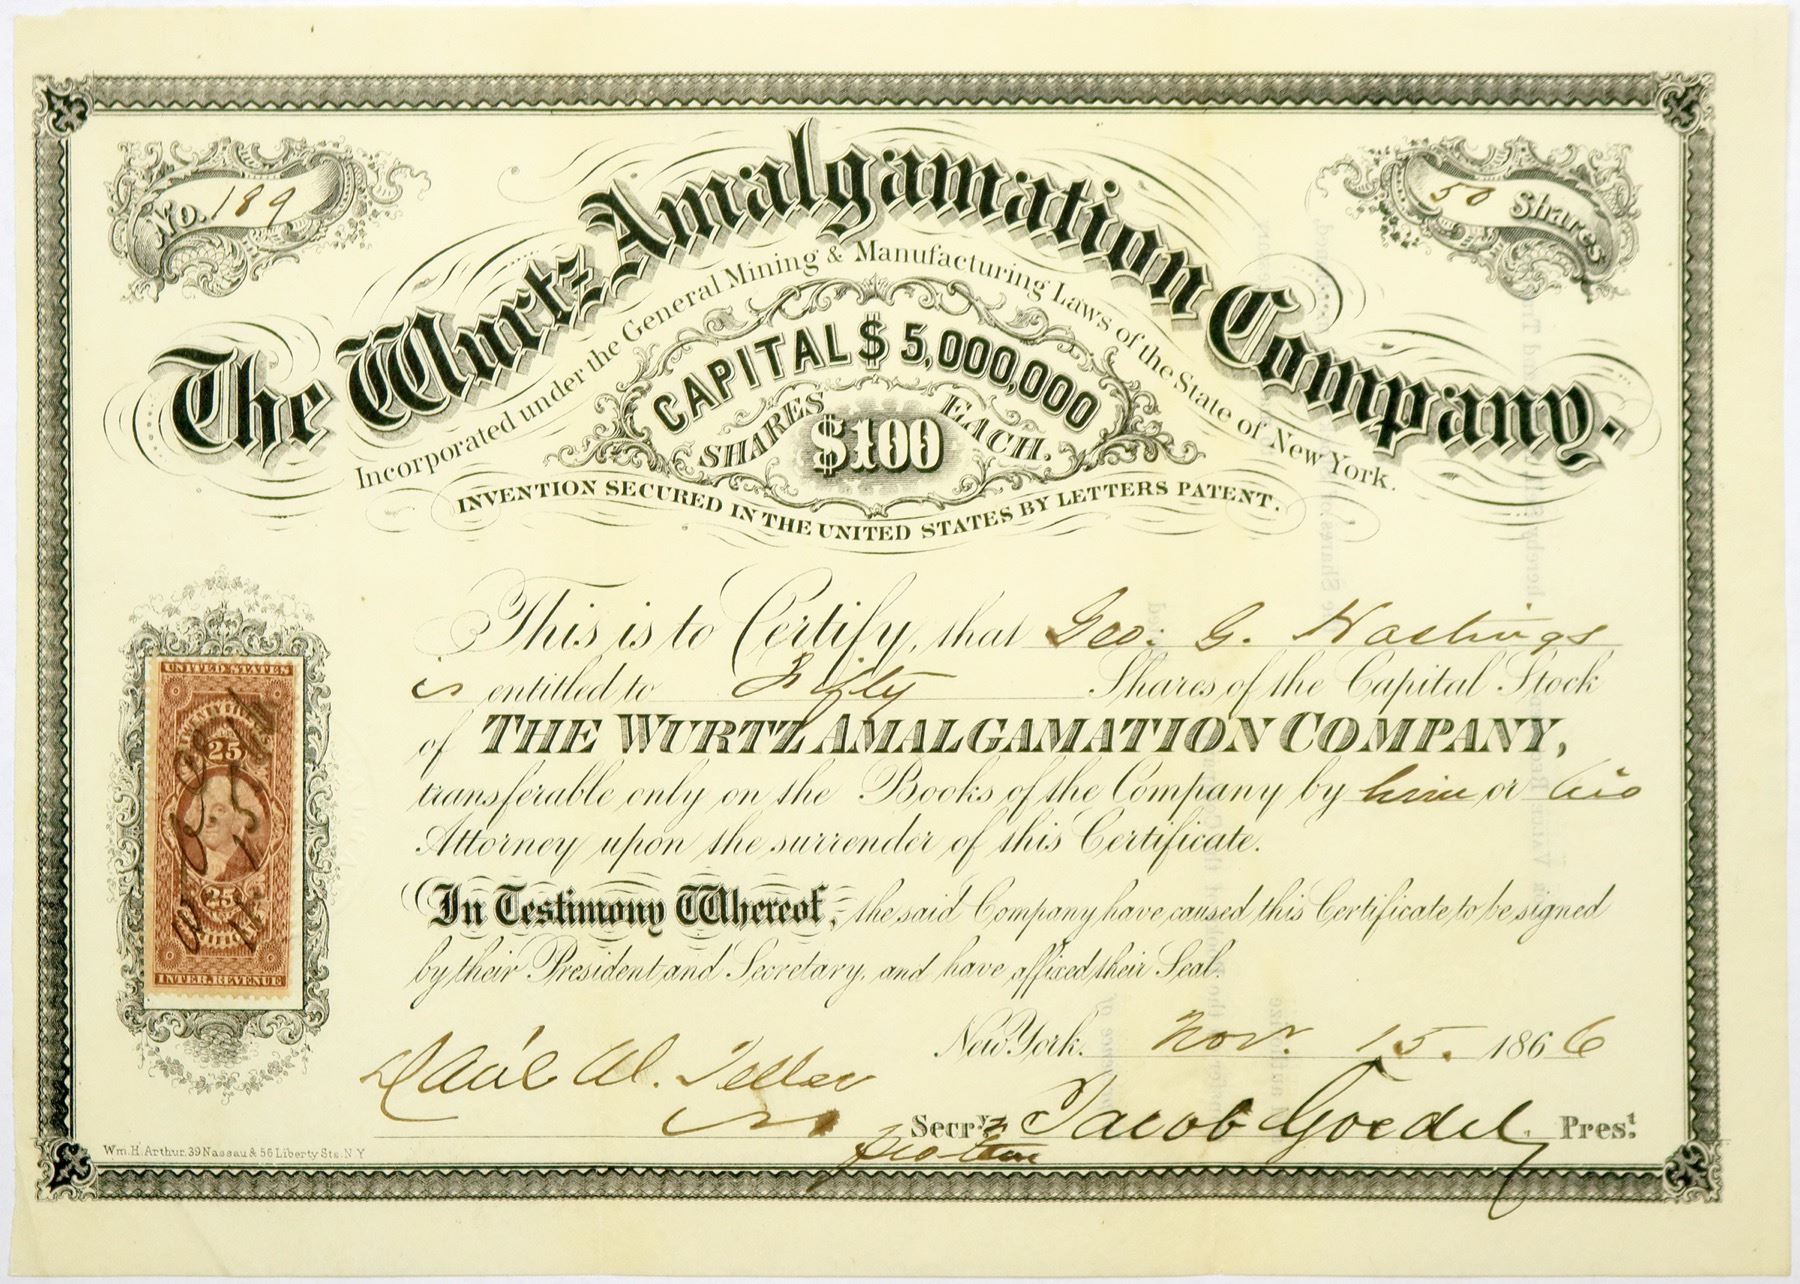 No. 189
50 Shares
The Wurtz Amalgamation Company.
Incorporated under the General Mining & Manufacturing Laws of the State of New York.
CAPITAL $5,000,000
SHARES $100 EACH.
INVENTION SECURED IN THE UNITED STATES BY LETTERS PATENT.
This is to Certify, that Geo: G. Hastings
is entitled to Fifty Shares of the Capital Stock
of THE WURTZ AMALGAMATION COMPANY,
transferable only on the Books of the Company by him or his
Attorney upon the surrender of this Certificate.
In Testimony Whereof, the said Company have caused this Certificate to be signed
by their President and Secretary, and have affixed their Seal.
New York. Nov. 15. 1866
Secry. pro tem
Jacob Goedel, Prest.
UNITED STATES
25
25
INTER. REVENUE
Wm. H. Arthur, 39 Nassau & 56 Liberty Sts. N Y